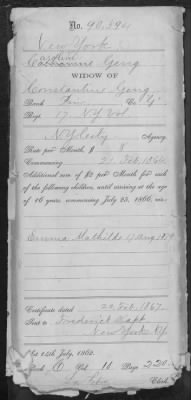 No. 90,394
New York
Caroline
Catharine Geng
WIDOW OF
Constantine Geng
Rank Priv. Co. "G"
Regt 17 NY Vol.
N.Y. City Agency.
Rate per Month, $ 8
Commencing 21 Feb. 1864
Additional sum of $2 per Month for each
of the following children, until arriving at the age
of 16 years, commencing July 25, 1866, viz:
Emma Mathilde 17 Aug. 1879
Certificate dated 22 Feb. 1867
Sent to Frederick Kapp
New York N.Y.
Act 14th July, 1862.
Vol. 16 Page 220
Clerk.